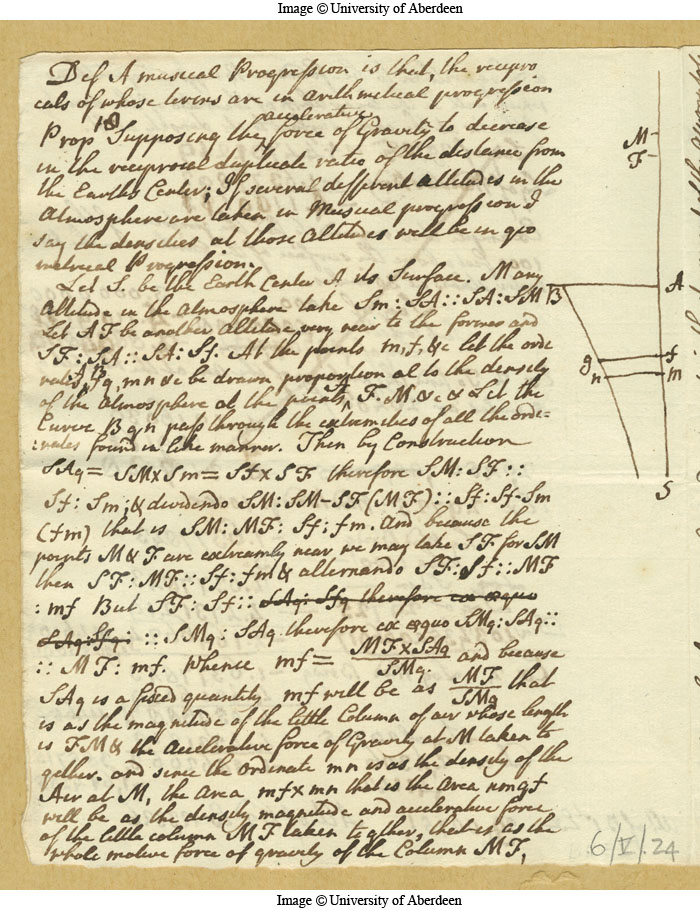 Image © University of Aberdeen
Def A musical Progression is that, the recipro
cals of whose terms are in arithmetical progression
Prop 1o Supposing the accelerative force of Gravity to decrease
in the reciprocal duplicate ratio of the distance from
the Earths Center; If several different altitudes in the
Atmosphere are taken in Musical progression I
say the densities at those altitudes will be in geo
metrical Progression.
Let S. be the Earth Center A its Surface. M any
altitude in the atmosphere take Sm : SA :: SA : SM
Let AF be another altitude very near to the former and
SF : SA :: SA : Sf. At the points m, f, &c let the ordi
nates AB, fg, mn &c be drawn proportional to the density
of the atmosphere at the points A, F. M &c & Let the
Curve Bgn pass through the extremeties of all the ordi-
:nates found in like manner. Then by Construction
SAq = SM×Sm = Sf×SF therefore SM : SF ::
Sf : Sm, & dividendo SM : SM–SF (MF) :: Sf : Sf–Sm
(fm) that is SM : MF : Sf : fm. And because the
points M & F are extreamly near we may take SF for SM
then SF : MF :: Sf : fm & alternando SF : Sf :: MF
: mf But SF : Sf :: SAq : Sfq therefore ex æquo
SAq : Sfq : :: SMq : SAq therefore ex æquo SMq : SAq ::
:: MF : mf. Whence mf = MF×SAq / SMq. and because
SAq is a fixed quantity mf will be as MF / SMq that
is as the magnitude of the little Column of air whose length
is FM & the accelerative force of Gravity at M taken to
gether. and since the ordinate mn is as the density of the
Air at M, the area mf×mn that is the area nmgf
will be as the density magnitude and accelerative force
of the little column MF taken together, that is as the
whole motive force of gravity of the Column MF,
M
F
B
A
g
f
n
m
S
6/V/.24
Image © University of Aberdeen